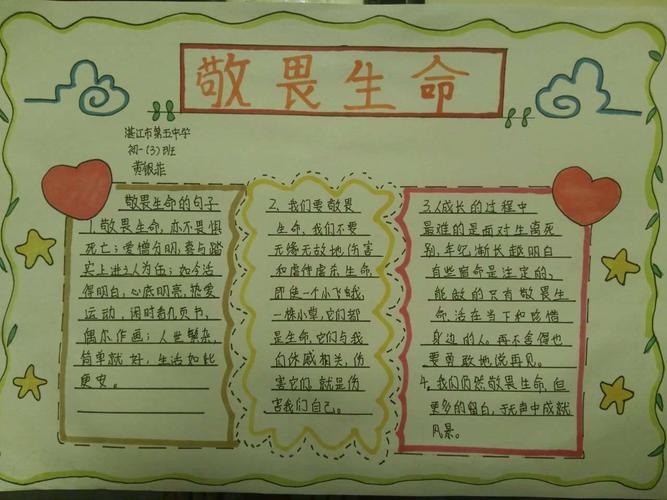 敬畏生命
湛江市第五中学
初一(3)班
黄银菲
敬畏生命的句子
1.敬畏生命,亦不畏惧
死亡;爱憎分明,喜与踏
实上进之人为伍;如今活
得明白,心底明亮,热爱
运动,闲时看几页书,
偶尔作画;人世繁杂,
简单就好,生活如此
更安。
2、我们要敬畏
生命,我们不要
无缘无故地伤害
和虐待虐杀生命,
即使一个小飞蛾,
一株小草,它们都
是生命,它们与我
们休戚相关,伤
害它们,就是伤
害我们自己。
3.人成长的过程中
最难的是面对生离死
别,年纪渐长越明白
有些宿命是注定的、
能做的只有敬畏生
命.活在当下和珍惜
身边的人。再不舍得也
要勇敢地说再见。
4、我们仍然敬畏生命,但
更多的留白,于无声中成就
风景。